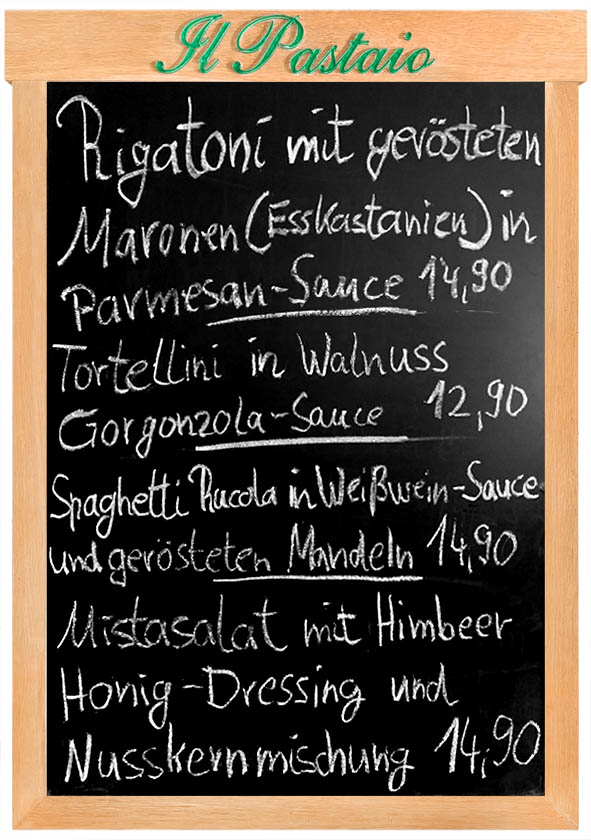 Il Pastaio
Rigatoni mit gerösteten
Maronen (Esskastanien) in
Parmesan-Sauce 14,90
Tortellini in Walnuss
Gorgonzola-Sauce 12,90
Spaghetti Rucola in Weißwein-Sauce
und gerösteten Mandeln 14,90
Mistasalat mit Himbeer
Honig-Dressing und
Nusskernmischung 14,90